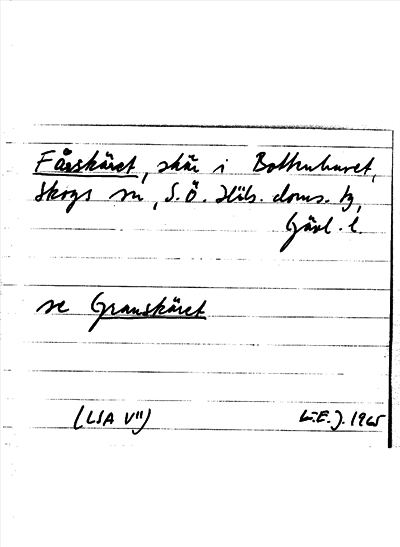 Fårskäret, skär i Bottenhavet,
Skogs sn, S.Ö. Häls. doms. tg,
Gävl. l.
se Granskäret
(LSA V")
L.E.J. 1965